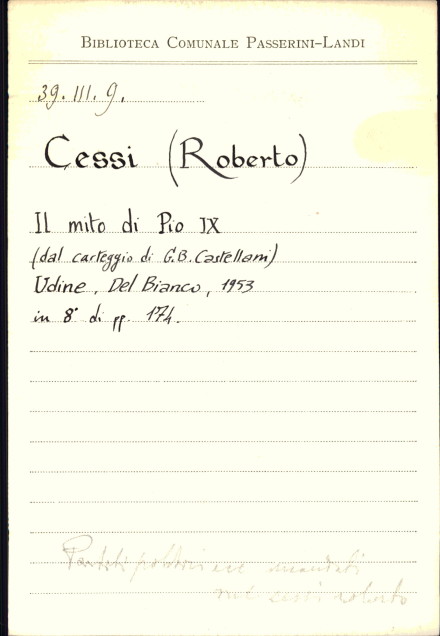 BIBLIOTECA COMUNALE PASSERINI-LANDI
39. III. 9.
Cessi (Roberto)
Il mito di Pio IX
(dal carteggio di G.B. Castellani)
Udine, Del Bianco, 1953
in 8° di pp. 174.
roberto